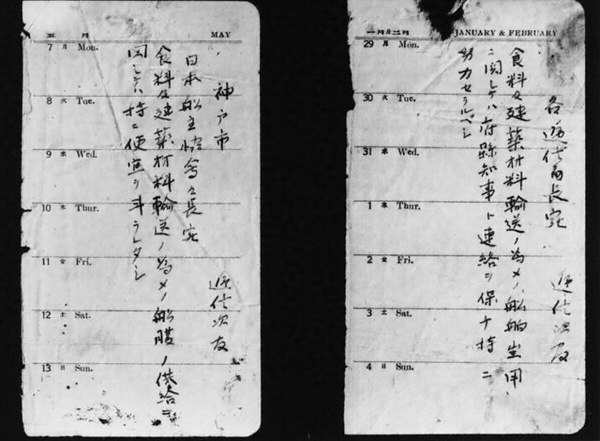 五 月 MAY
7 月 Mon.
8 火 Tue.
9 水 Wed.
10 木 Thur.
11 金 Fri.
12 土 Sat.
13 日 Sun.
逓信次官
神戸市
日本船主協會々長宛
食料及建築材料輸送ノ為メノ船腹ノ供給ニ
関シテハ特ニ便宜ヲ計ラレタシ
一月及二月 JANUARY & FEBRUARY
29 月 Mon.
30 火 Tue.
31 水 Wed.
1 木 Thur.
2 金 Fri.
3 土 Sat.
4 日 Sun.
逓信次官
各逓信局長宛
食料及建築材料輸送ノ為メノ船舶
ニ関シテハ府縣知事ト連絡ヲ保チ特ニ
努力セラルベシ